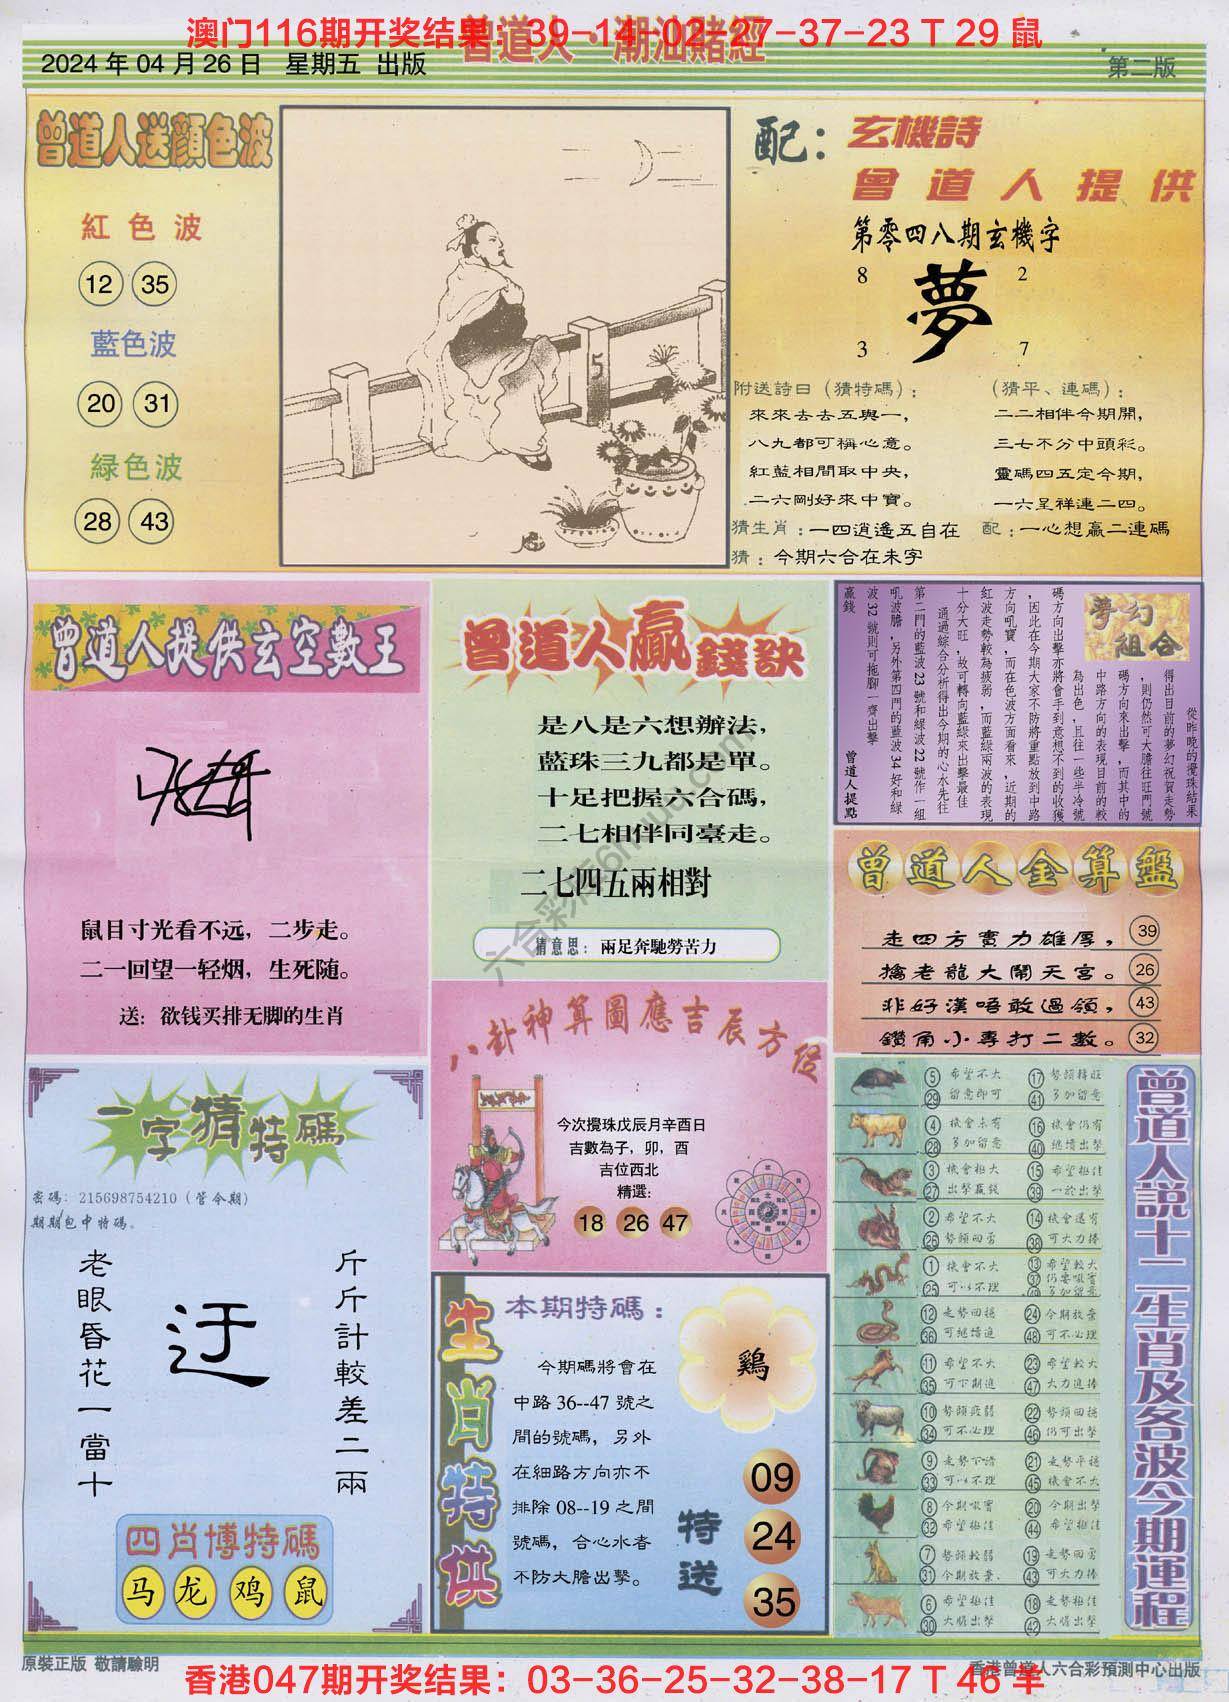 澳门116期开奖结果：39-14-02-27-37-23 T 29 鼠
曾道人·潮汕賭經
2024 年 04 月 26 日 星期五 出版
第二版
曾道人送顔色波
紅色波
12 35
藍色波
20 31
緑色波
28 43
5
配：玄機詩
曾道人提供
第零四八期玄機字
8 2
夢
3 7
附送詩曰（猜特碼）：
來來去去五與一，
八九都可稱心意。
紅藍相間取中央，
二六剛好來中寶。
（猜平、連碼）：
二二相伴今期開，
三七不分中頭彩。
靈碼四五定今期，
一六呈祥連二四。
猜生肖：一四逍遙五自在
配：一心想贏二連碼
猜：今期六合在未字
曾道人提供玄空數王
鼠目寸光看不远，二步走。
二一回望一轻烟，生死随。
送：欲钱买排无脚的生肖
曾道人贏錢訣
是八是六想辦法，
藍珠三九都是單。
十足把握六合碼，
二七相伴同臺走。
二七四五兩相對
猜意思：兩足奔馳勞苦力
夢幻組合
從昨晚的攪珠結果
得出目前的夢幻祝賀走勢
，則仍然可大膽往旺門號
碼方向來出擊，而其中的
中路方向的表現目前的較
為出色，且往一些半冷號
碼方向出擊亦將會手到意想不到的收獲
，因此在今期大家不防將重點放到中路
方向吼寶，而在色波方面看來，近期的
紅波走勢較為疲弱，而藍綠兩波的表現
十分大旺，故可轉向藍綠來出擊最佳
通過綜合分析得出今期的心水先往
第二門的藍波23號和綠波22號作一組
吼波膽，另外第四門的藍波34好和綠
波32號則可拖腳一齊出擊
贏錢
曾道人提點
曾道人金算盤
走四方實力雄厚， 39
擒老龍大鬧天宮。 26
非好漢唔敢過嶺， 43
鑽角小專打二數。 32
八卦神算圖應吉辰方位
今次攪珠戊辰月辛酉日
吉數為子，卯，酉
吉位西北
精選:
18 26 47
一字猜特碼
密碼: 215698754210 (管今期)
期期包中特碼。
老眼昏花一當十
迂
斤斤計較差二兩
四肖博特碼
马 龙 鸡 鼠
生肖特供
本期特碼：
鷄
今期碼將會在
中路 36--47 號之
間的號碼，另外
在細路方向亦不
排除 08--19 之間
號碼，合心水者
不防大膽出擊。
特送
09
24
35
曾道人説十二生肖及各波今期運程
5 29 希望不大 留意即可 17 41 勢頭轉旺 多加留意
4 28 機會未有 多加留意 16 40 機會仍有 繼續出擊
3 27 機會極大 出擊贏錢 15 39 希望極佳 一於出擊
2 26 希望不大 勢頭回勇 14 38 機會還有 可大力捧
1 25 機會不大 可以不理 13 37 49 希望較大 仍要吼實 多加留意
12 36 走勢回穩 可繼續追 24 48 今期放棄 可不必理
11 35 希望不大 可下期追 23 47 希望較大 大力追捧
10 34 勢頭疲弱 可不必理 22 46 勢頭回穩 仍可出擊
9 33 走勢下滑 可以不理 21 45 走勢平穩 機會不大
8 32 今期吼實 希望極佳 20 44 今期出擊 希望極佳
7 31 勢頭較弱 今期放棄、 19 43 走勢回勇 可大力捧
6 30 希望極佳 大膽出擊 18 42 走勢極佳 大膽出擊
六合彩库6hhuo.com
原裝正版 敬請驗明
香港曾道人六合彩預測中心出版
香港047期开奖结果：03-36-25-32-38-17 T 46 羊